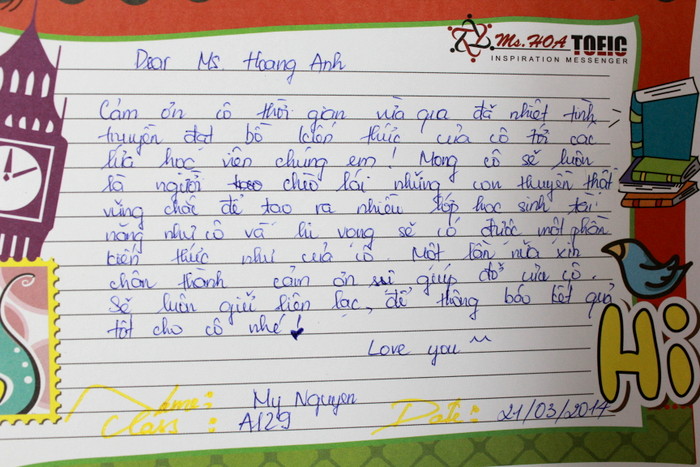 Ms. HOA TOEIC
INSPIRATION MESSENGER
Dear Ms Hoang Anh
Cảm ơn cô thời gian vừa qua đã nhiệt tình
truyền đạt bồ kiến thức của cô tới các
lứa học viên chúng em! Mong cô sẽ luôn
là người chèo lái những con thuyền thật
vững chãi để tạo ra nhiều lớp học sinh tài
năng như cô và hi vọng sẽ có được một phần
kiến thức như của cô. Một lần nữa xin
chân thành cảm ơn sự giúp đỡ của cô.
Sẽ luôn giữ liên lạc, để thông báo kết quả
tốt cho cô nhé!
Love you ~
Name: My Nguyen
Class: A129 Date: 21/03/2014
Hi